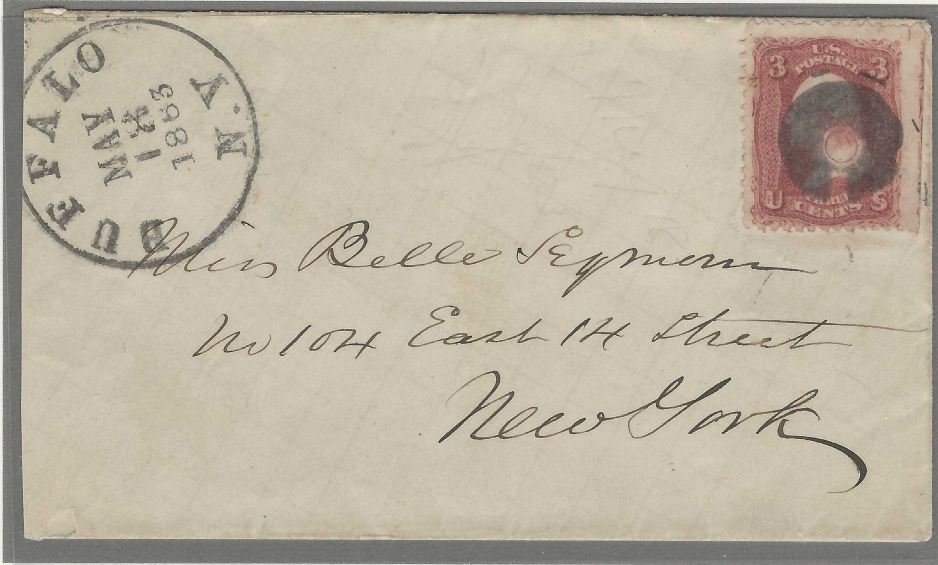 BUFFALO N.Y.
MAY
18
1863
3 U.S. POSTAGE 3
U CENTS S
Miss Belle Seymour
No 104 East 14 Street
New York